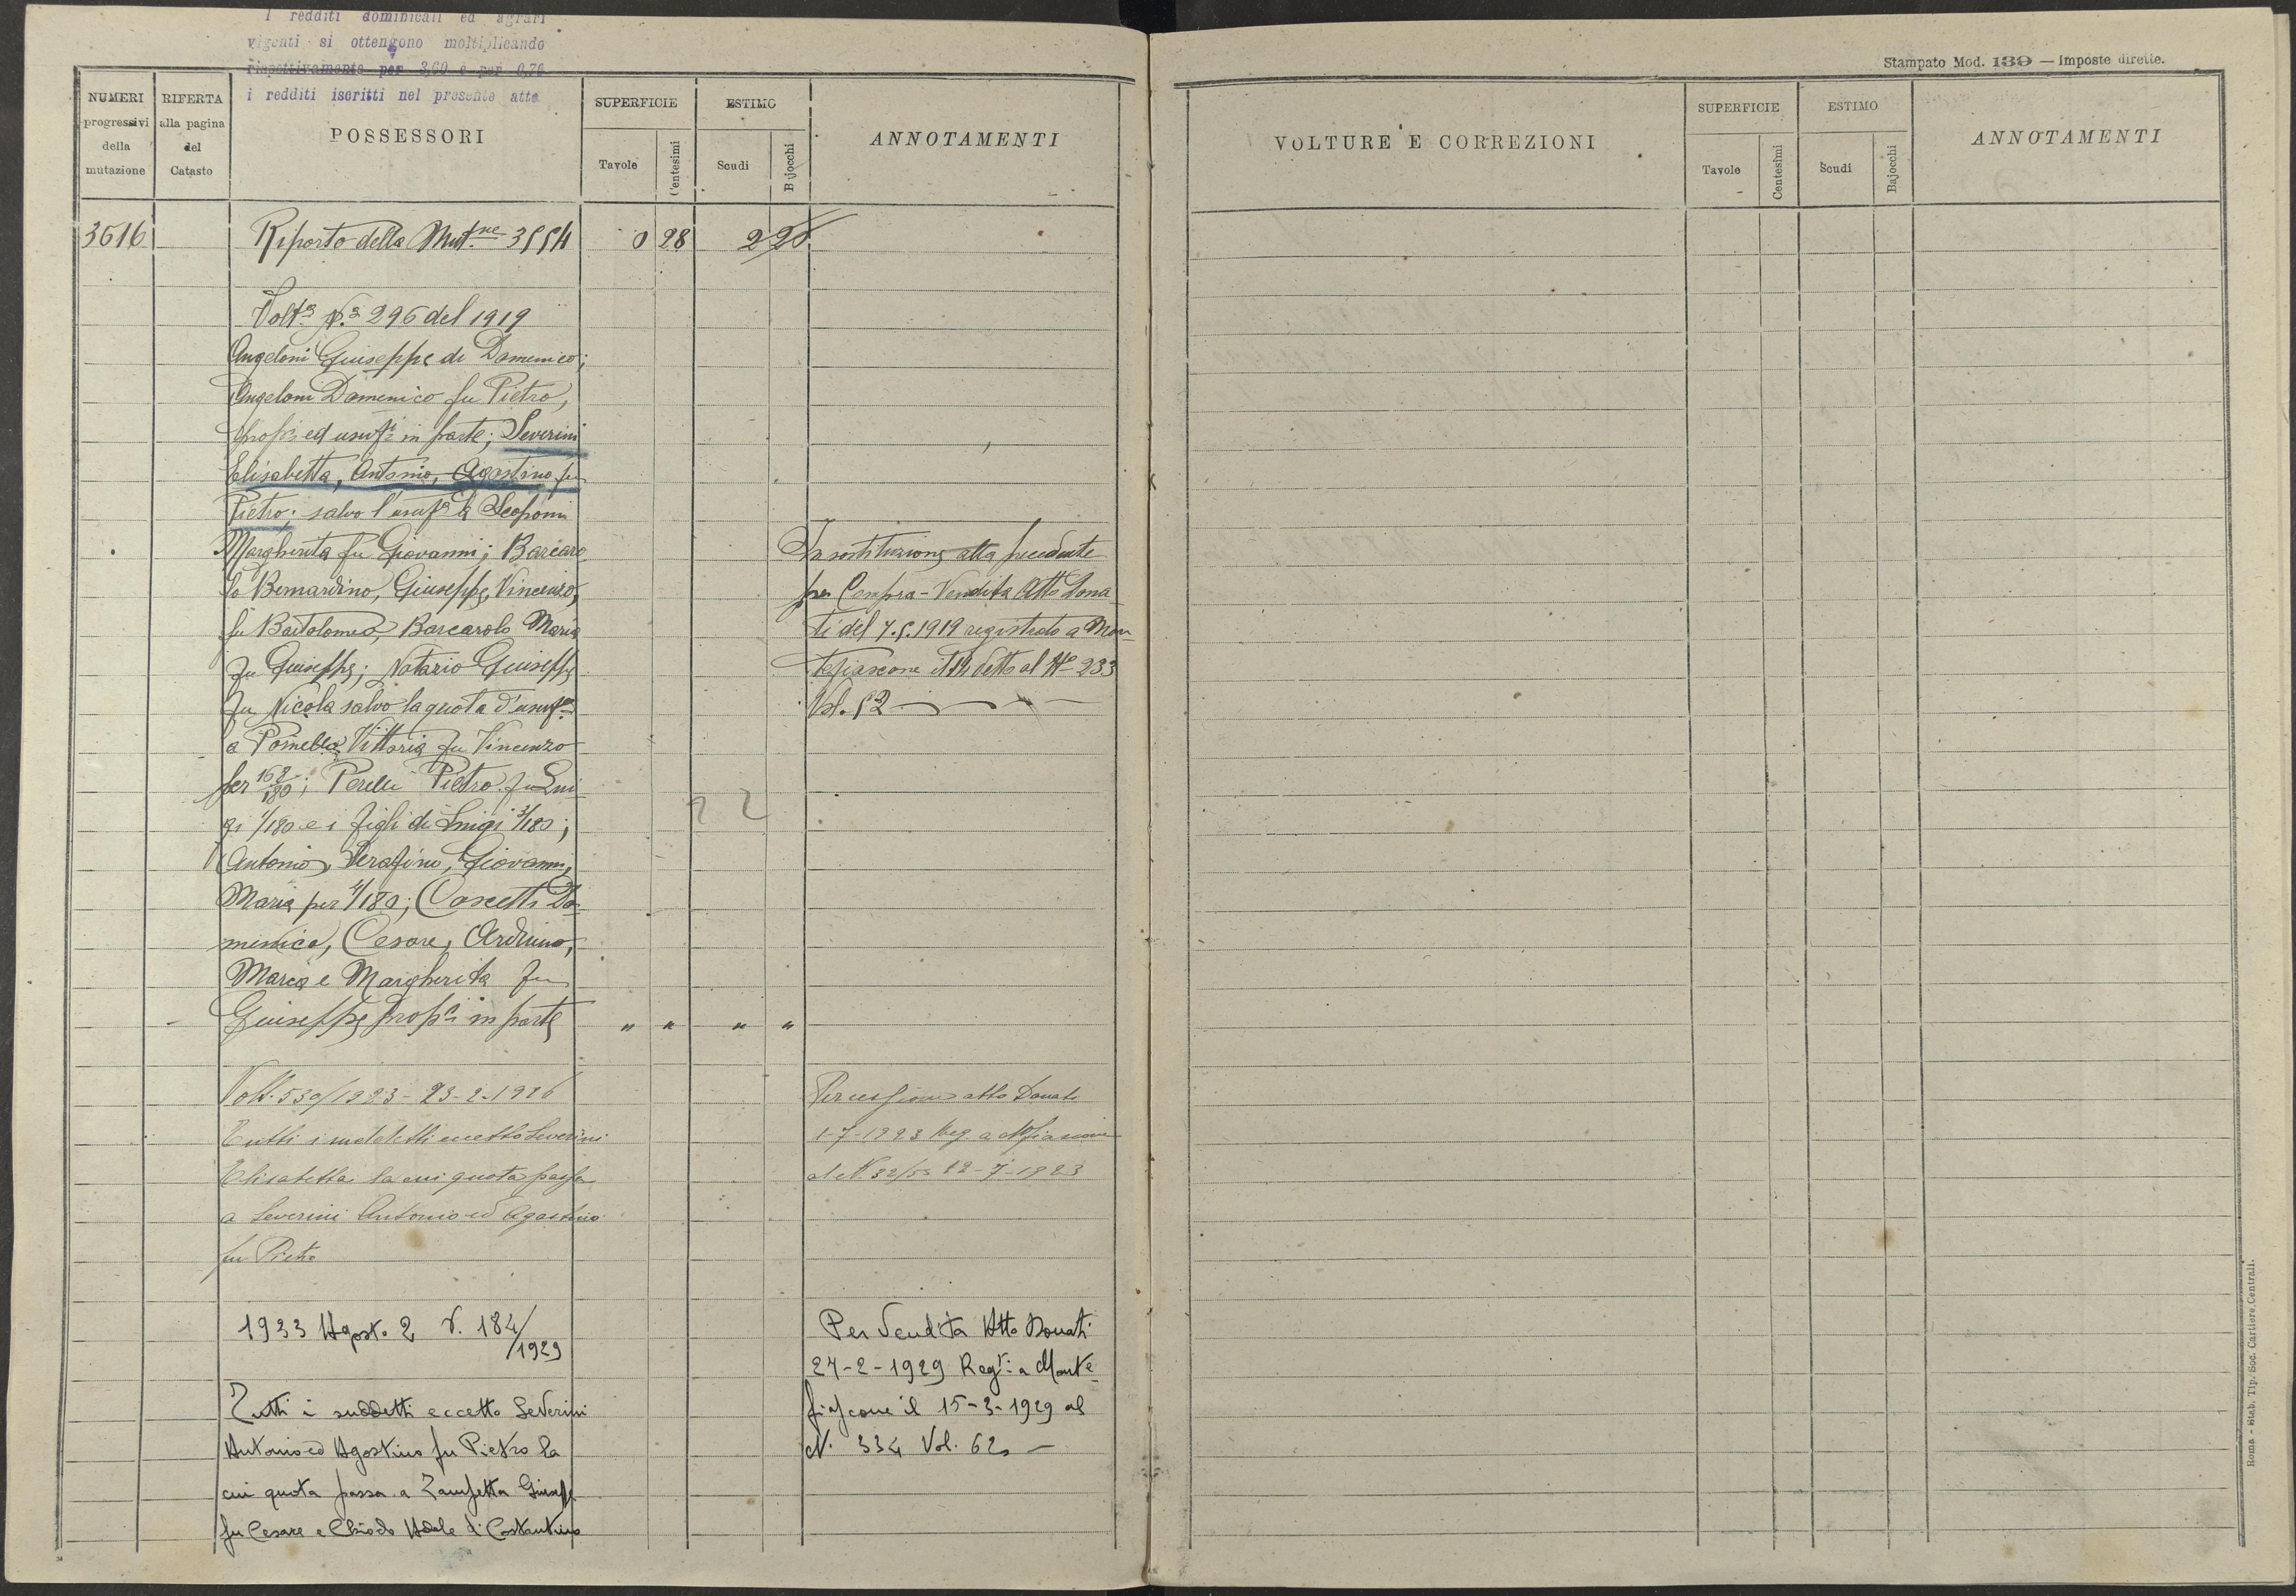 I redditi dominicali ed agrari
vigenti si ottengono moltiplicando
rispettivamente per 3,60 e per 0,70
i redditi iscritti nel presente atto
NUMERI progressivi della mutazione
RIFERTA alla pagina del Catasto
POSSESSORI
SUPERFICIE
Tavole
Centesimi
ESTIMO
Scudi
Bajocchi
ANNOTAMENTI
3616 Riporto della Mut.ne 3554 0 28 2 28
Volt.a N.o 296 del 1919
Angeloni Giuseppe di Domenico;
Angeloni Domenico fu Pietro,
prop.i ed usuf.i in parte; Severini
Elisabetta, Antonio, Agostino fu
Pietro; salvo l'usuf.o a Leoponi
Margherita fu Giovanni; Barcaro
lo Bernardino, Giuseppe, Vincenzo,
fu Bartolomeo, Barcarolo Maria
fu Giuseppe; Notario Giuseppe
fu Nicola salvo la quota d'usuf.o
a Vittoria fu Vincenzo
per 168/180; Perelli Pietro fu Lui
gi 1/180 e i figli di Luigi 3/180;
Antonio, Serafino, Giovanni,
Maria per 4/180; Cascetti Do
menica, Cesare, Arduino,
Maria e Margherita fu
Giuseppe prop.i in parte " " " "
In sostituzione alla precedente
per Compra-Vendita Atto Dona
ti del 7.5.1919 registrato a Mon
tefiascone il detto al N.o 233
Vol. 52
22
Volt. 530/1923 - 23-2-1926
Tutti i suddetti eccetto Severini
Elisabetta la cui quota passa
a Severini Antonio ed Agostino
fu Pietro
Per cessione atto Donati
1-7-1923 Reg. a Mfiascone
al N. 32/53 12-7-1923
1933 Agosto 2 V. 184/1929
Tutti i suddetti eccetto Severini
Antonio ed Agostino fu Pietro la
cui quota passa a Zampetta Giusepp
fu Cesare e Chiodo Adele di Costantino
Per Vendita Atto Donati
27-2-1929 Reg. a Monte
fiascone il 15-3-1929 al
N. 334 Vol. 62
Stampato Mod. 139 — Imposte dirette.
VOLTURE E CORREZIONI
SUPERFICIE
Tavole
Centesimi
ESTIMO
Scudi
Bajocchi
ANNOTAMENTI
Roma - Stab. Tip. Soc. Cartiere Centrali.